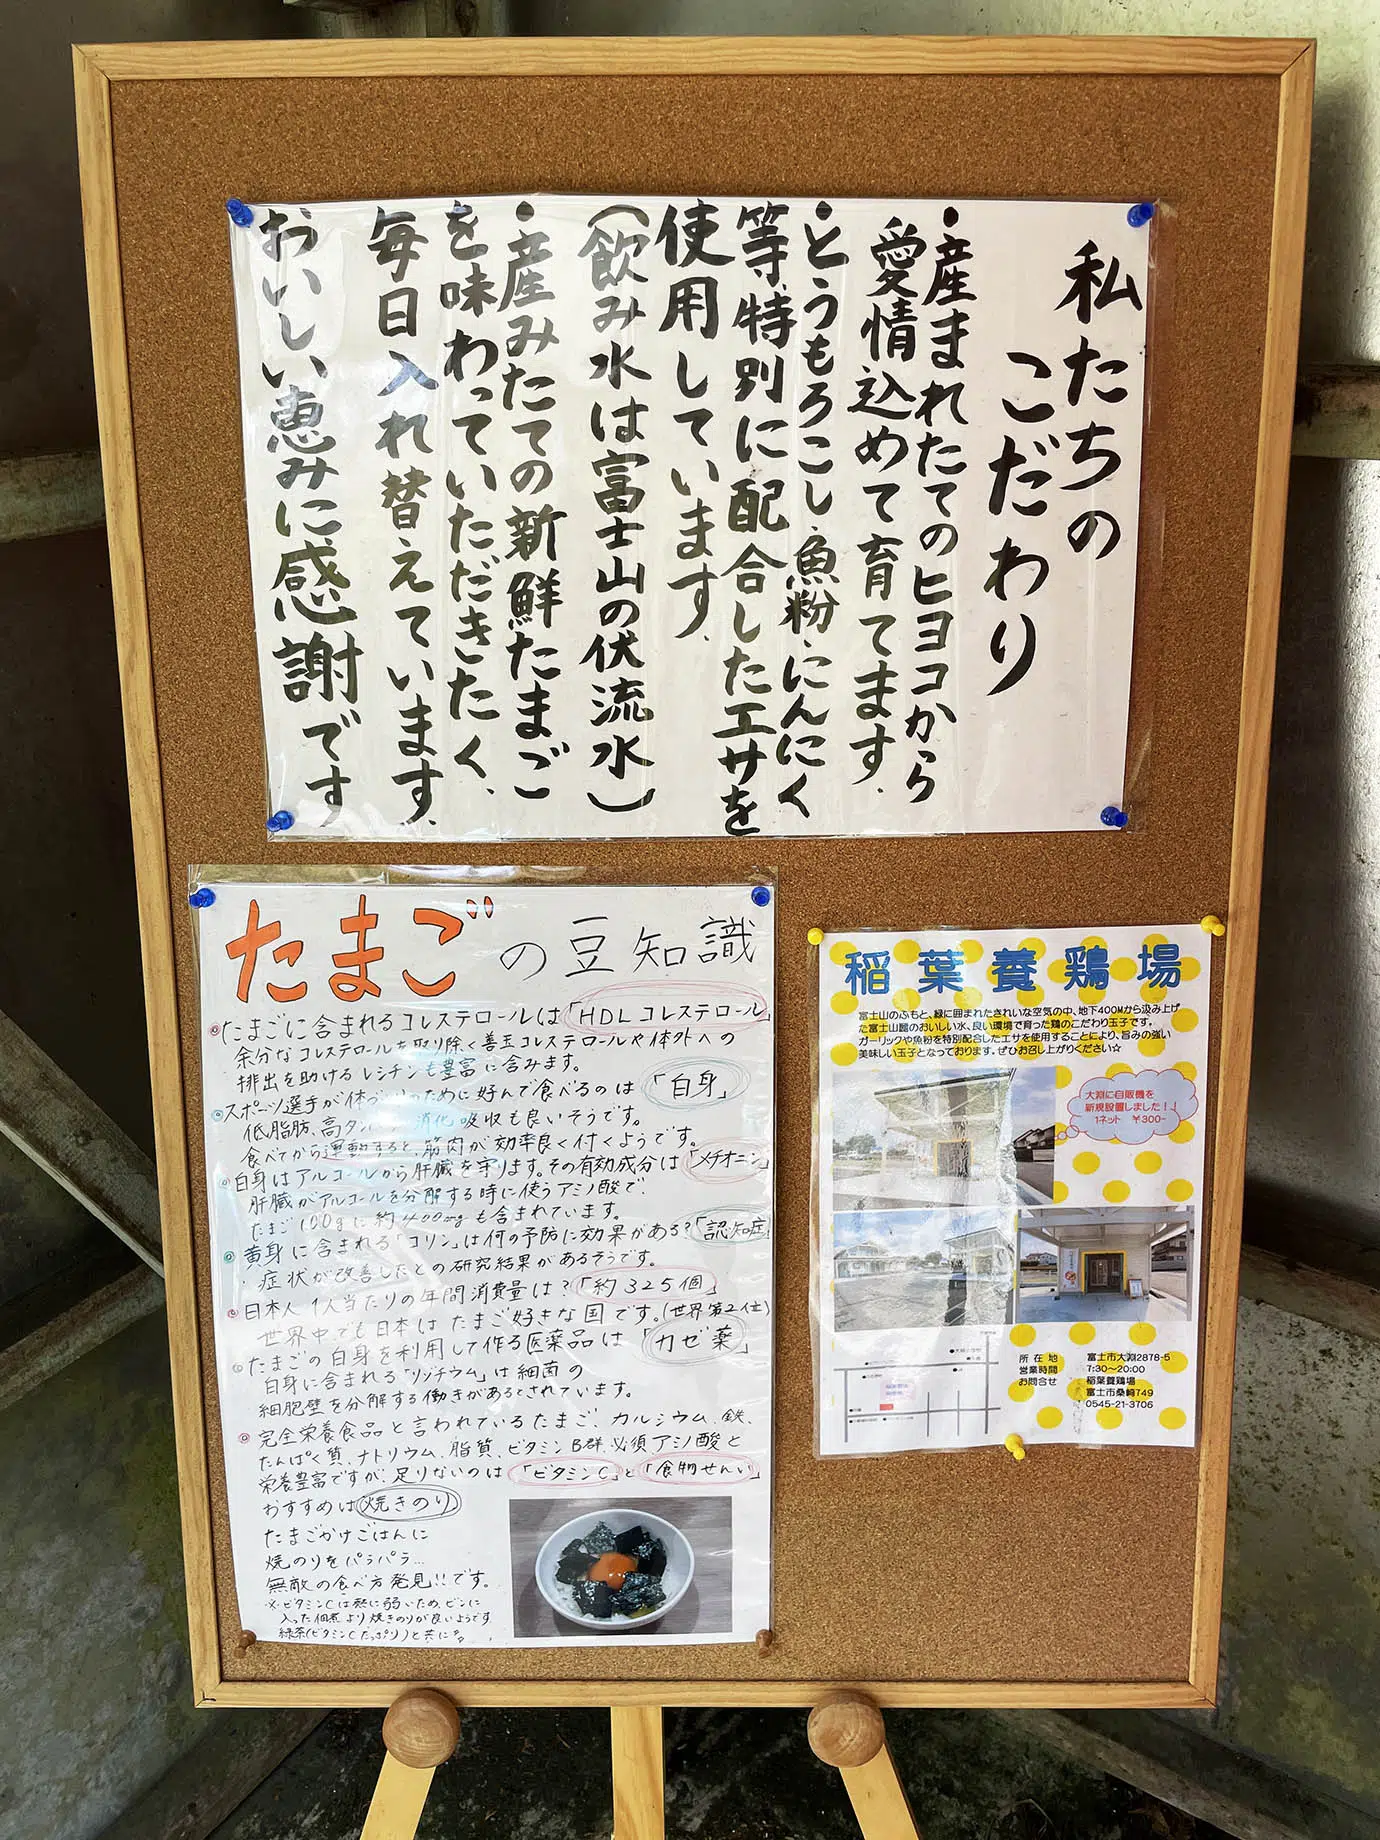 私たちの
こだわり
・産まれたてのヒヨコから
愛情込めて育てます.
・とうもろこし・魚粉・にんにく
等、特別に配合したエサを
使用しています.
(飲み水は富士山の伏流水)
・産みたての新鮮たまご
を味わっていただきたく、
毎日入れ替えています.
おいしい恵みに感謝です
たまごの豆知識
たまごに含まれるコレステロールは「HDLコレステロール」
余分なコレステロールを取り除く善玉コレステロールや体外への
排出を助けるレシチンも豊富に含みます。
スポーツ選手が体づくりのために好んで食べるのは「白身」
低脂肪、高タン 消化吸収も良いそうです。
食べてから運動すると、筋肉が効率良く付くようです。
白身はアルコールから肝臓を守ります。その有効成分は「メチオニン」
肝臓がアルコールを分解する時に使うアミノ酸で、
たまご100gに約400mgも含まれています。
黄身に含まれる「コリン」は何の予防に効果がある?「認知症」
症状が改善したとの研究結果があるそうです。
日本人1人当たりの年間消費量は?「約325個」
世界中でも日本はたまご好きな国です。(世界第2位)
たまごの白身を利用して作る医薬品は「カゼ薬」
白身に含まれる「リゾチウム」は細菌の
細胞壁を分解する働きがあるとされています。
完全栄養食品と言われているたまご、カルシウム、鉄、
たんぱく質、ナトリウム、脂質、ビタミンB群、必須アミノ酸と
栄養豊富ですが、足りないのは「ビタミンC」と「食物せんい」
おすすめは焼きのり
たまごかけごはんに
焼のりをパラパラ…
無敵の食べ方発見!!です。
※ビタミンCは熱に弱いため、ビンに
入った佃煮より焼きのりが良いようです
緑茶(ビタミンCたっぷり)と共に
稲葉養鶏場
富士山のふもと、緑に囲まれたきれいな空気の中、地下400Mから汲み上げ
た富士山麓のおいしい水、良い環境で育った鶏のこだわり玉子です。
ガーリックや魚粉を特別配合したエサを使用することにより、旨みの強い
美味しい玉子となっております。ぜひお召し上がりください☆
大淵に自販機を
新規設置しました!!
1ネット ¥300-
所在地 富士市大淵2878-5
営業時間 7:30～20:00
お問合せ 稲葉養鶏場
富士市桑崎749
0545-21-3706